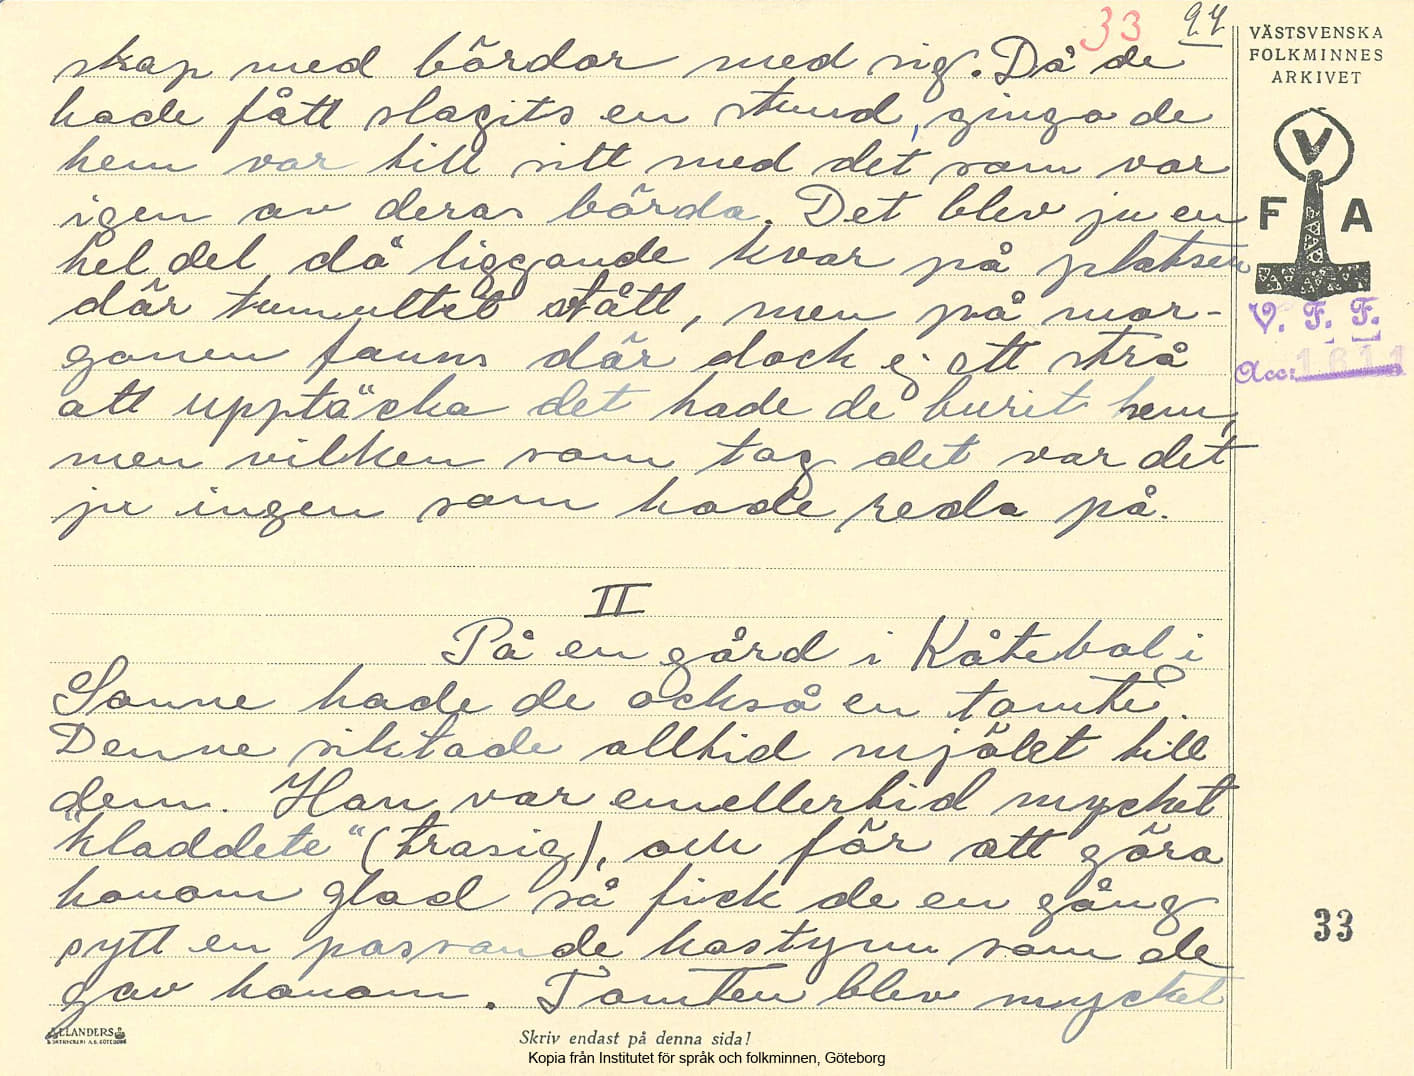 33 94
VÄSTSVENSKA
FOLKMINNES
ARKIVET
V
F A
V. F. F.
Acc: 1611
skap med bördor med sig. Då de
hade fått slagits en stund, gingo de
hem var till sitt med det som var
igen av deras börda. Det blev ju en
hel del då liggande kvar på platsen
där tumultet stått, men på mor-
gonen fanns där dock ej ett strå
att upptäcka det hade de burit hem,
men vilken som tog det var det
ju ingen som hade reda på.
II
På en gård i Kåtebol i
Sanne hade de också en tomte.
Denne siktade alltid mjölet till
dem. Han var emellertid mycket
"kladdete" (trasig), och för att göra
honom glad så fick de en gång
sytt en passande kostym som de
gav honom. Tomten blev mycket
33
Skriv endast på denna sida!
Kopia från Institutet för språk och folkminnen, Göteborg